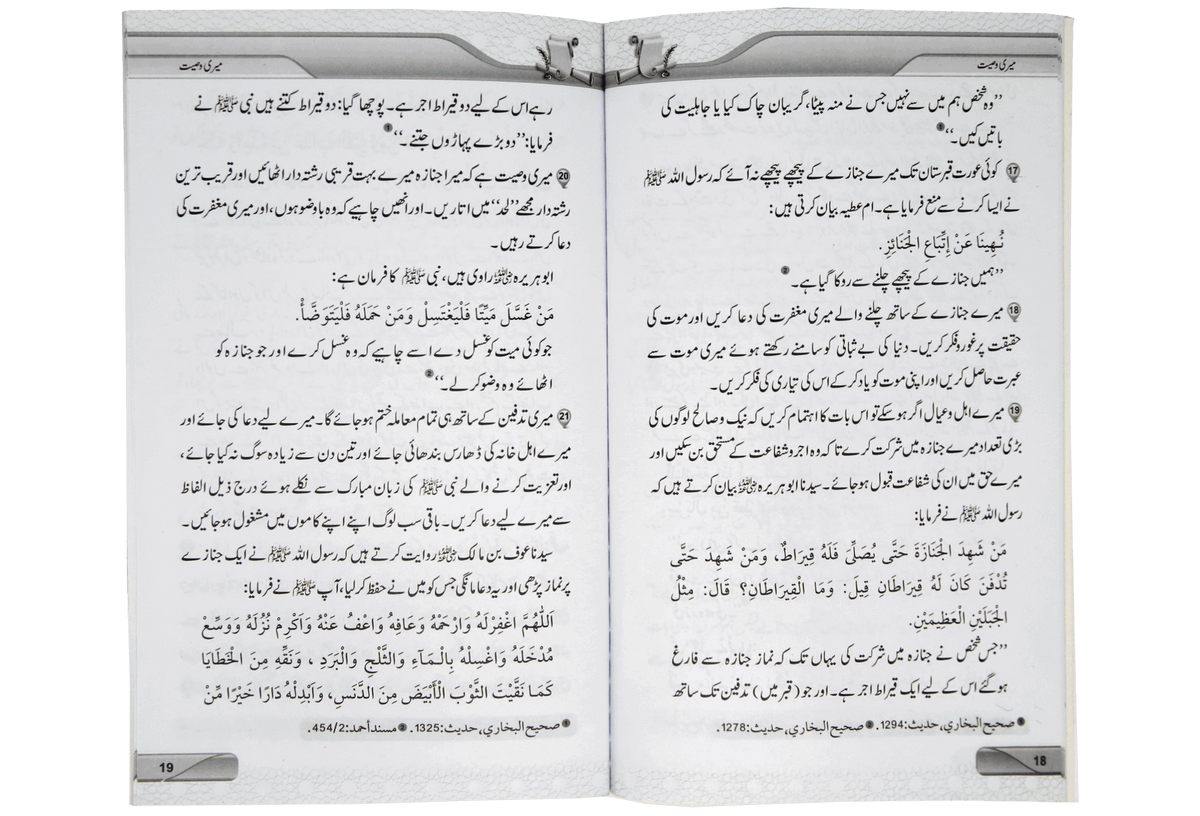 میری وصیت
’’وہ شخص ہم میں سے نہیں جس نے منہ پیٹا، گریبان چاک کیا یا جاہلیت کی
باتیں کیں۔‘‘❶
⓱ کوئی عورت قبرستان تک میرے جنازے کے پیچھے پیچھے نہ آئے کہ رسول اللہ ﷺ
نے ایسا کرنے سے منع فرمایا ہے۔ ام عطیہ بیان کرتی ہیں:
نُهِينَا عَنْ إِتِّبَاعِ الْجَنَائِزِ.
’’ہمیں جنازے کے پیچھے چلنے سے روکا گیا ہے۔❷
⓲ میرے جنازے کے ساتھ چلنے والے میری مغفرت کی دعا کریں اور موت کی
حقیقت پر غور و فکر کریں۔ دنیا کی بے ثباتی کو سامنے رکھتے ہوئے میری موت سے
عبرت حاصل کریں اور اپنی موت کو یاد کر کے اس کی تیاری کی فکر کریں۔
⓳ میرے اہل و عیال اگر ہو سکے تو اس بات کا اہتمام کریں کہ نیک و صالح لوگوں کی
بڑی تعداد میرے جنازہ میں شرکت کرے تاکہ وہ اجر و شفاعت کے مستحق بن سکیں اور
میرے حق میں ان کی شفاعت قبول ہو جائے۔ سیدنا ابو ہریرہ رضی اللہ عنہ بیان کرتے ہیں کہ
رسول اللہ ﷺ نے فرمایا:
مَنْ شَهِدَ الْجَنَازَةَ حَتَّى يُصَلِّىَ فَلَهُ قِيرَاطٌ، وَمَنْ شَهِدَ حَتَّى
تُدْفَنَ كَانَ لَهُ قِيرَاطَانِ قِيلَ: وَمَا الْقِيرَاطَانِ؟ قَالَ: مِثْلُ
الْجَبَلَيْنِ الْعَظِيمَيْنِ.
’’جس شخص نے جنازہ میں شرکت کی یہاں تک کہ نماز جنازہ سے فارغ
ہو گئے اس کے لیے ایک قیراط اجر ہے۔ اور جو (قبر میں) تدفین تک ساتھ
❶ صحيح البخاري، حديث: 1294. ❷ صحيح البخاري، حديث: 1278.
18
میری وصیت
رہے اس کے لیے دو قیراط اجر ہے۔ پوچھا گیا: دو قیراط کتنے ہیں نبی ﷺ نے
فرمایا: ’’دو بڑے پہاڑوں جتنے۔‘‘❶
⓴ میری وصیت ہے کہ میرا جنازہ میرے بہت قریبی رشتہ دار اٹھائیں اور قریب ترین
رشتہ دار مجھے ’’لحد‘‘ میں اتاریں۔ اور انھیں چاہیے کہ وہ با وضو ہوں، اور میری مغفرت کی
دعا کرتے رہیں۔
ابو ہریرہ رضی اللہ عنہ راوی ہیں، نبی ﷺ کا فرمان ہے:
مَنْ غَسَّلَ مَيِّتًا فَلْيَغْتَسِلْ وَمَنْ حَمَلَهُ فَلْيَتَوَضَّأْ.
جو کوئی میت کو غسل دے اسے چاہیے کہ وہ غسل کرے اور جو جنازہ کو
اٹھائے وہ وضو کر لے۔‘‘❷
㉑ میری تدفین کے ساتھ ہی تمام معاملہ ختم ہو جائے گا۔ میرے لیے دعا کی جائے اور
میرے اہل خانہ کی ڈھارس بندھائی جائے اور تین دن سے زیادہ سوگ نہ کیا جائے،
اور تعزیت کرنے والے نبی ﷺ کی زبان مبارک سے نکلے ہوئے درج ذیل الفاظ
سے میرے لیے دعا کریں۔ باقی سب لوگ اپنے اپنے کاموں میں مشغول ہو جائیں۔
سیدنا عوف بن مالک رضی اللہ عنہ روایت کرتے ہیں کہ رسول اللہ ﷺ نے ایک جنازے
پر نماز پڑھی اور یہ دعا مانگی جس کو میں نے حفظ کر لیا، آپ ﷺ نے فرمایا:
اَللّٰهُمَّ اغْفِرْلَهُ وَارْحَمْهُ وَعَافِهِ وَاعْفُ عَنْهُ وَاَكْرِمْ نُزُلَهُ وَوَسِّعْ
مُدْخَلَهُ وَاغْسِلْهُ بِالْمَآءِ وَالثَّلْجِ وَالْبَرَدِ ، وَنَقِّهِ مِنَ الْخَطَايَا
كَمَا نَقَّيْتَ الثَّوْبَ الْأَبْيَضَ مِنَ الدَّنَسِ، وَاَبْدِلْهُ دَارًا خَيْرًا مِّنْ
❶ صحيح البخاري، حديث: 1325. ❷ مسند أحمد: 454/2.
19